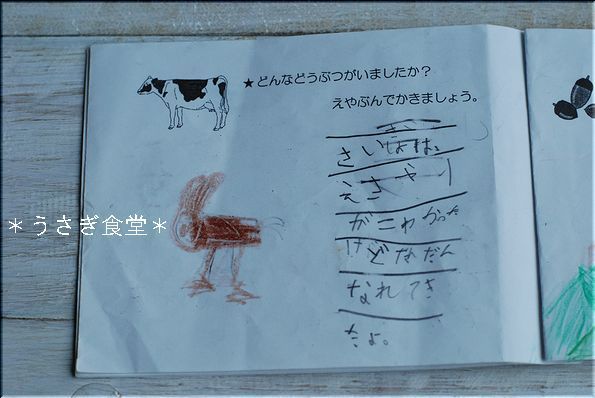 ★どんなどうぶつがいましたか?
えやぶんでかきましょう。
さいしょは、
えさやり
がこわかった
けどなだん
なれてき
たよ。
＊うさぎ食堂＊